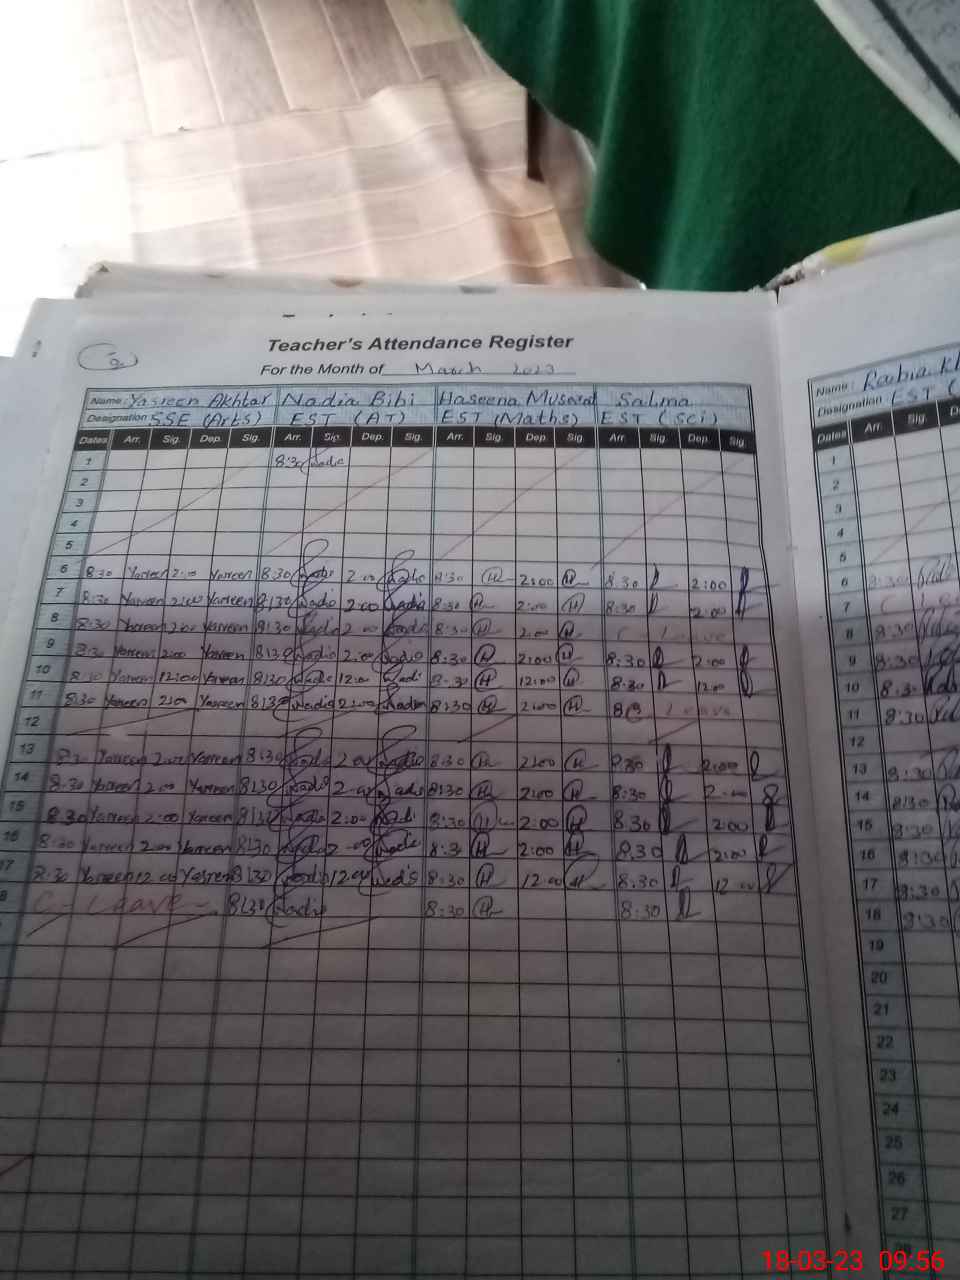 Teacher's Attendance Register
For the Month of March 2023
Name: Yasreen Akhtar Nadia Bibi Haseena Musarat Salma
Designation SSE (Arts) EST (AT) EST (Maths) EST (Sci)
Dates Arr. Sig. Dep. Sig. Arr. Sig. Dep. Sig. Arr. Sig. Dep. Sig. Arr. Sig. Dep. Sig.
1 8:30 Nadia
2
3
4
5
6 8:30 Yasreen 2:00 Yasreen 8:30 Nadia 2:00 Nadia 8:30 H 2:00 H 8:30 2:00
7 8:30 Yasreen 2:00 Yasreen 8:30 Nadia 2:00 Nadia 8:30 H 2:00 H 8:30 2:00
8 8:30 Yasreen 2:00 Yasreen 8:30 Nadia 2:00 Nadia 8:30 H 2:00 H C - Leave
9 8:30 Yasreen 2:00 Yasreen 8:30 Nadia 2:00 Nadia 8:30 H 2:00 H 8:30 2:00
10 8:30 Yasreen 12:00 Yasreen 8:30 Nadia 12:00 Nadi 8:30 H 12:00 H 8:30 12:00
11 8:30 Yasreen 2:00 Yasreen 8:30 Nadia 2:00 Nadia 8:30 H 2:00 H Leave
12
13 8:30 Yasreen 2:00 Yasreen 8:30 Nadia 2:00 Nadia 8:30 H 2:00 H 8:30 2:00
14 8:30 Yasreen 2:00 Yasreen 8:30 Nadia 2:00 Nadia 8:30 H 2:00 H 8:30 2:00
15 8:30 Yasreen 2:00 Yasreen 8:30 Nadia 2:00 Nadi 8:30 H 2:00 H 8:30 2:00
16 8:30 Yasreen 2:00 Yasreen 8:30 Nadia 2:00 Nadia 8:30 H 2:00 H 8:30 2:00
17 8:30 Yasreen 12:00 Yasreen 8:30 Nadia 12:00 Nadia 8:30 H 12:00 H 8:30 12:00
8 C - Leave - 8:30 Nadia 8:30 H 8:30
Name: Rabia
Designation EST (
Dates Arr. Sig.
1
2
3
4
5
6 8:30
7 C
8 8:30
9 8:30
10 8:30
11 8:30
12
13 8:30
14 8:30
15 8:30
16 8:30
17 8:30
18 8:30
19
20
21
22
23
24
25
26
27
28
18-03-23 09:56